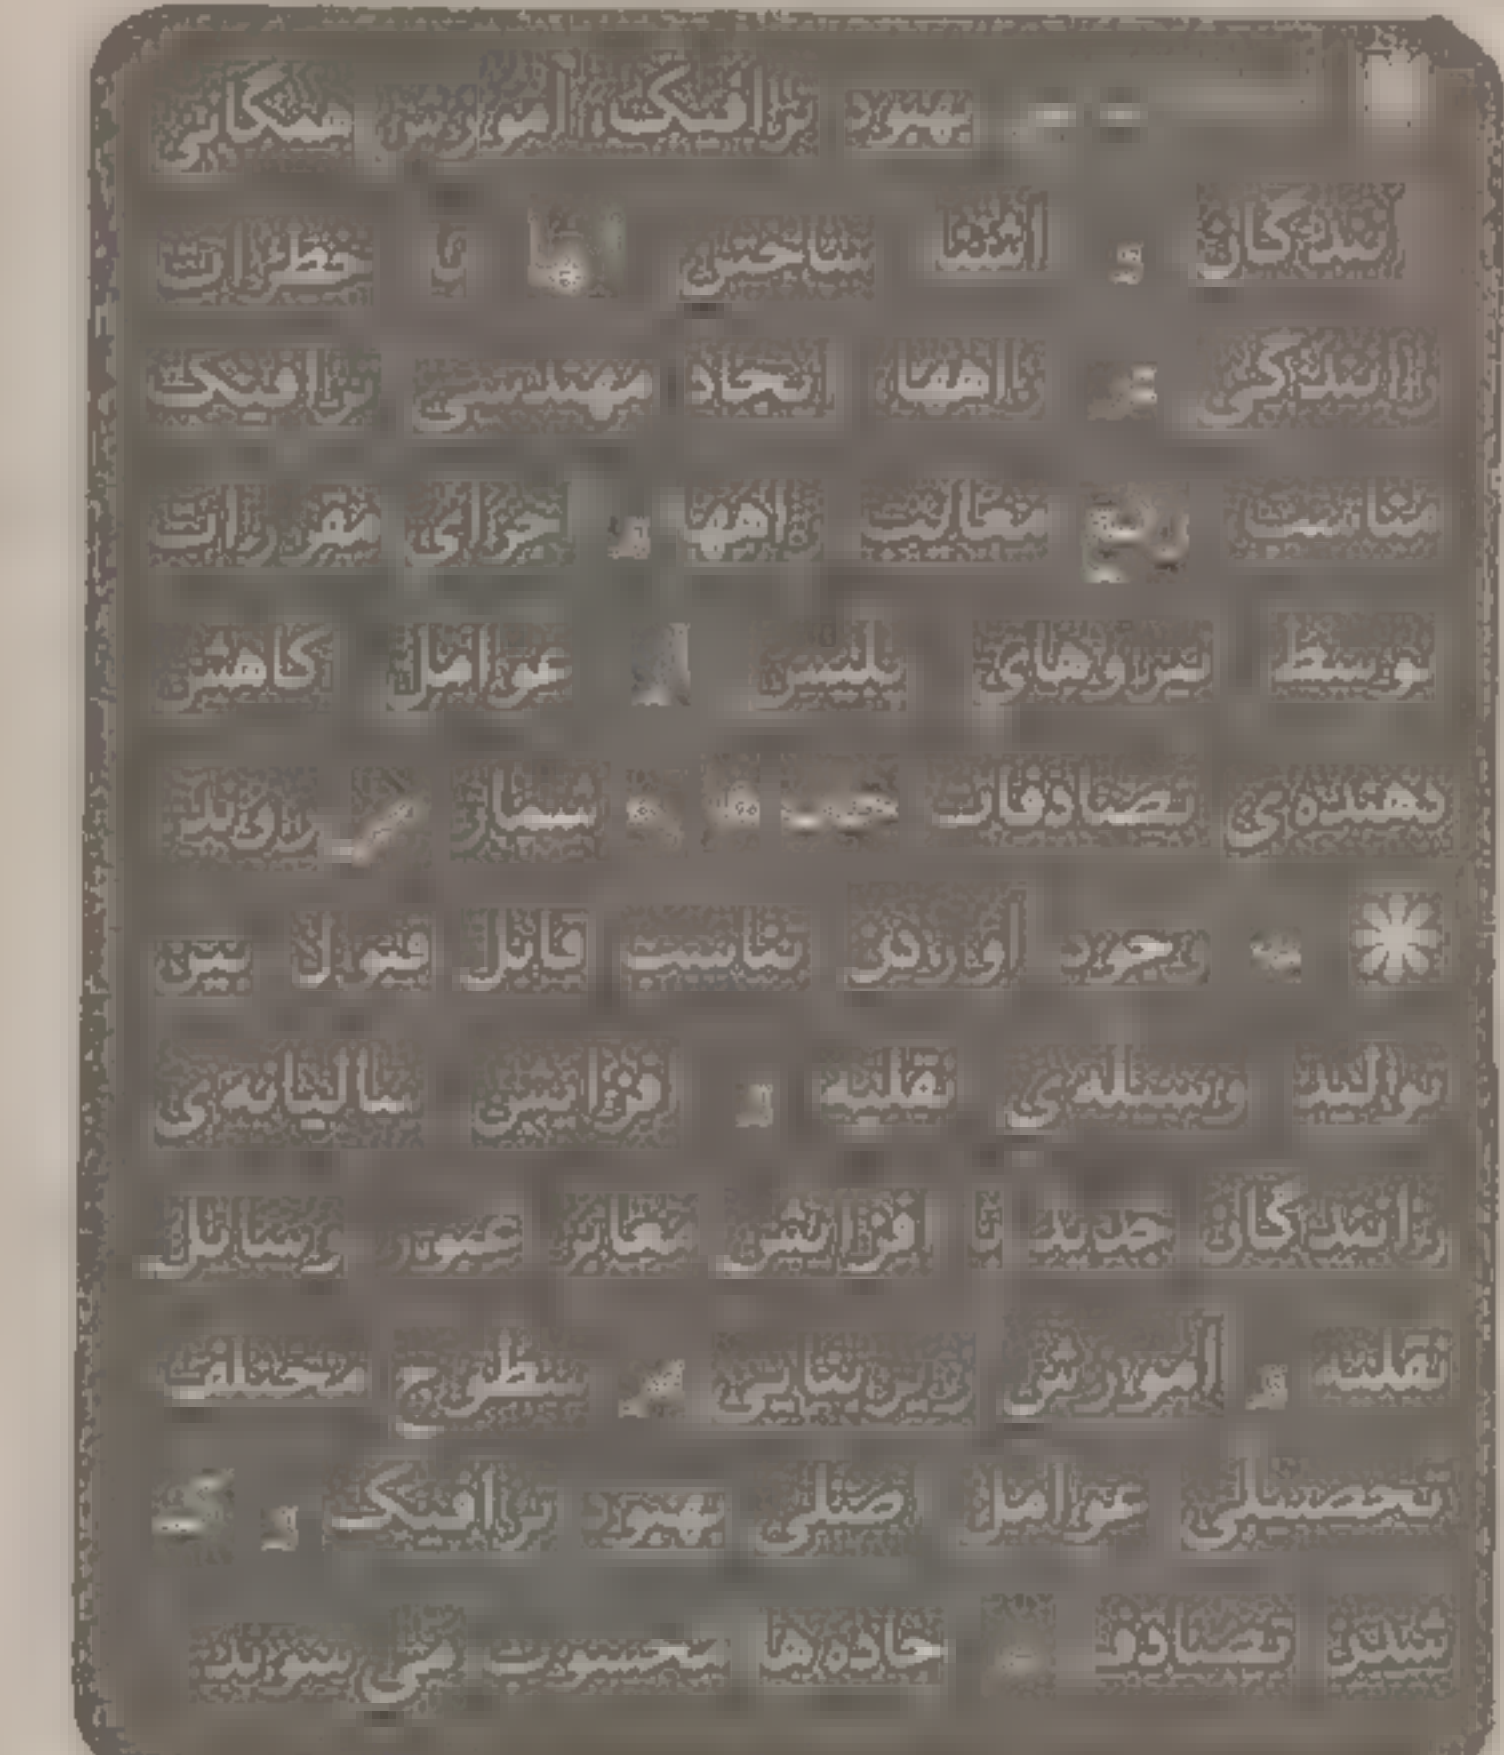 بهبود ترافیک، آموزش همگانی
رانندگان و آشنا ساختن آنها با خطرات
رانندگی و راهها، ایجاد مهندسی ترافیک
مناسب معاینت راهها و اجرای مقررات
توسط نیروهای پلیس از عوامل کاهش
دهنده‌ی تصادفات به شمار می‌روند
به وجود آوردن تناسب قابل قبول بین
تولید وسیله‌ی نقلیه و افزایش سالیانه‌ی
رانندگان جدید با افزایش معابر عبور وسائل
نقلیه و آموزش زیربنایی در سطوح مختلف
تحصیلی عوامل اصلی بهبود ترافیک و کم
شدن تصادف در جاده‌ها محسوب می‌شوند